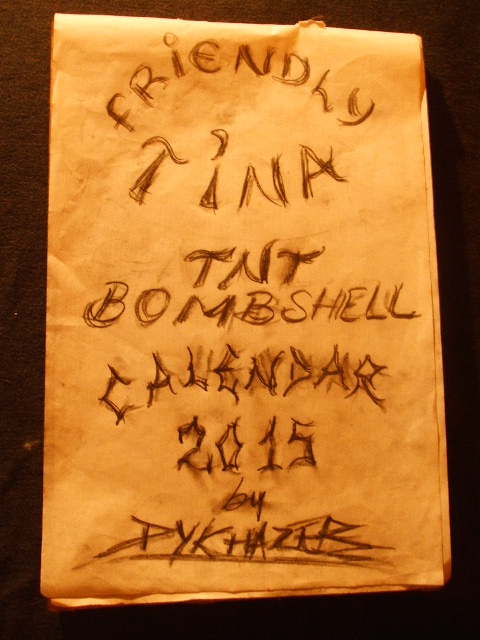 FRiENDLY
TiNA
TNT
BOMBSHELL
CALENDAR
2015
by
DYKHAZER